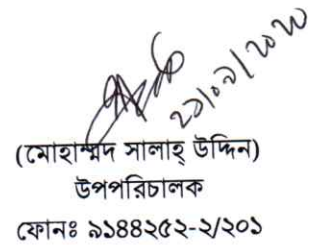 ২১/০৯/২০২০
(মোহাম্মদ সালাহ্ উদ্দিন)
উপপরিচালক
ফোনঃ ৯১৪৪২৫২-২/২০১